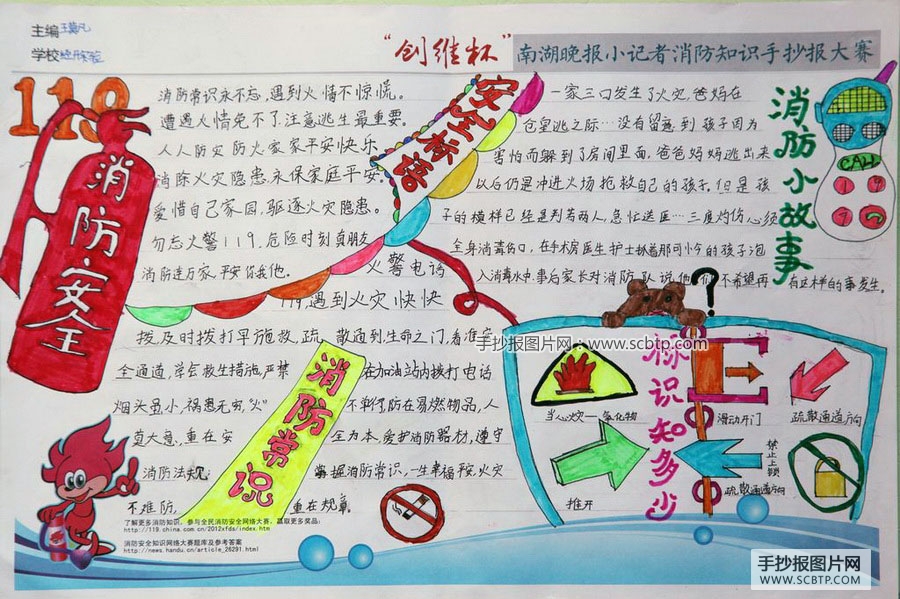 主编
学校
“创维杯”南湖晚报小记者消防知识手抄报大赛
119
消防安全
消防常识永不忘,遇到火情不惊慌。
遭遇火情免不了,注意逃生最重要。
人人防灾防火,家家平安快乐
消除火灾隐患永保家庭平安
爱惜自己家园,驱逐火灾隐患。
勿忘火警119.危险时刻真朋友
消防连万家,平安你我他。
安全标语
火警电话
119,遇到火灾快快
拨及时拨打早施救,疏散通到生命之门,看准安
全通道,学会救生措施,严禁在加油站内拨打电话
烟头虽小,祸患无穷,“火”不单行,防在易燃物品,人
莫大意,重在安全为本.爱护消防器材,遵守
消防法规;掌握消防常识,一生幸福平安,火灾
不难防,重在规章。
消防常识
消防小故事
一家三口发生了火灾,爸妈在
仓皇逃之际…没有留意到孩子因为
害怕而躲到了房间里面,爸爸妈妈逃出来
以后仍是冲进火场抢救自己的孩子,但是孩
子的模样已经是判若两人,急忙送医…三度灼伤必须
全身消毒伤口,在手术房医生护士
入消毒水中.事后家长对消防队说
不希望再有这样的事发生。
CALL
?
标识知多少
当心火灾—氧化物
滑动开门
疏散通道方向
推开
疏散通道方向
禁止上锁
手抄报图片网:www.scbtp.com
了解更多消防知识,参与全民消防安全网络大赛,赢取更多奖品:
http://119.china.com.cn/2012xfds/index.htm
消防安全知识网络大赛题库及参考答案
http://news.handu.cn/article_26291.html
手抄报图片网
WWW.SCBTP.COM